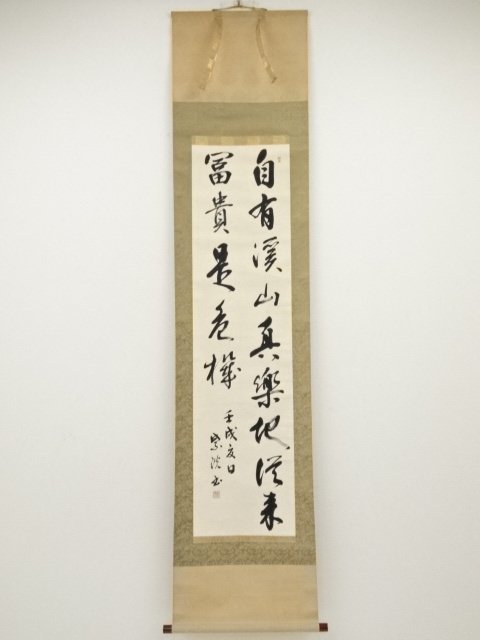 自有溪山真樂地從来
冨貴是危機
壬戌夏日
書